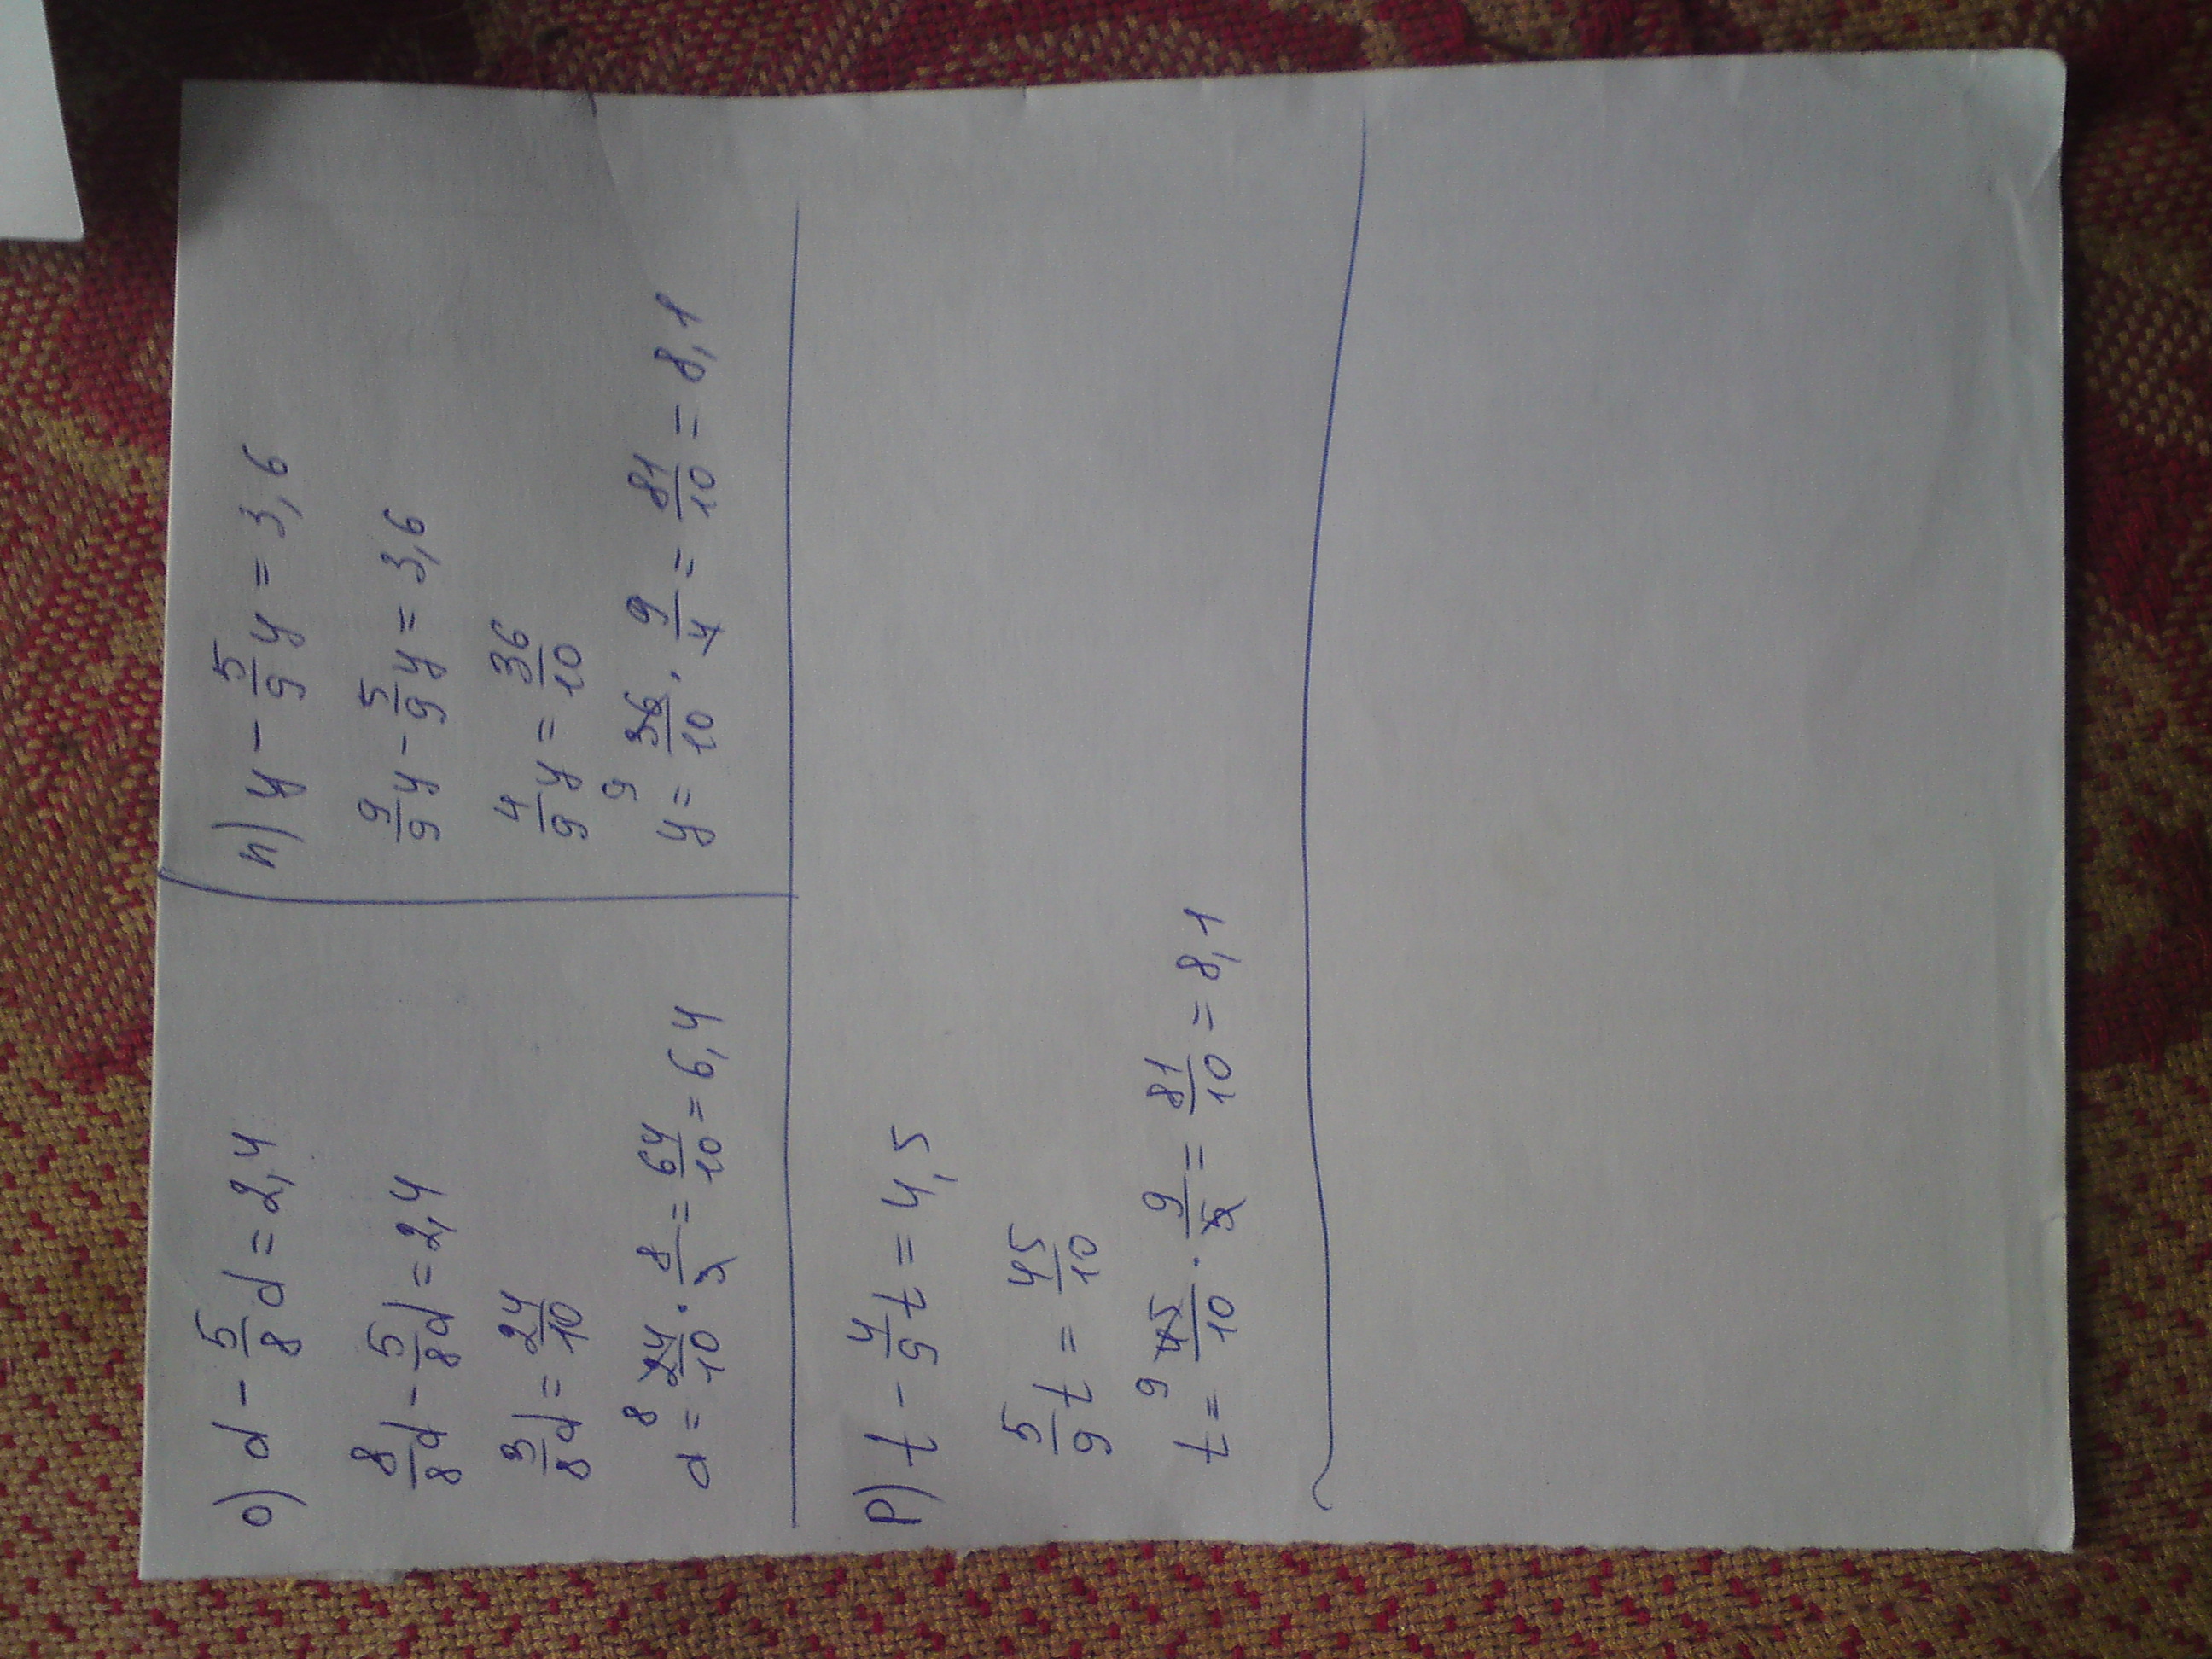 о) d - 5/8 d = 2,4
8/8 d - 5/8 d = 2,4
3/8 d = 24/10
d = 8 24/10 · 8/3 = 64/10 = 6,4
п) y - 5/9 y = 3,6
9/9 y - 5/9 y = 3,6
4/9 y = 36/10
y = 9 36/10 · 9/4 = 81/10 = 8,1
р) t - 4/9 t = 4,5
5/9 t = 45/10
t = 9 45/10 · 9/5 = 81/10 = 8,1